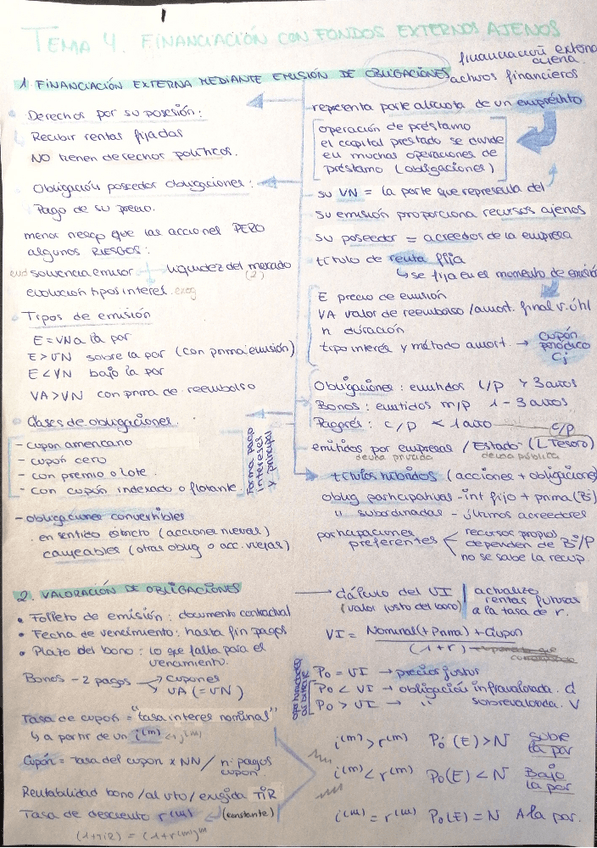 TEMA 4. FINANCIACIÓN CON FONDOS EXTERNOS AJENOS
financiación externa
ajena.
1. FINANCIACIÓN EXTERNA MEDIANTE EMISIÓN DE OBLIGACIONES
activos financieros
Derechos por su posesión:
Recibir rentas fijadas
NO tienen derechos políticos.
Obligación poseedor obligaciones:
Pago de su precio.
menor riesgo que las acciones PERO
algunos RIESGOS:
solvencia emisor
liquidez del mercado
(2)
evolución tipos interés
Tipos de emisión
E = VN a la par
E > VN sobre la par (con prima emisión)
E < VN bajo la par
VA > VN con prima de reembolso
Clases de obligaciones.
- cupón americano
- cupón cero
- con premio o lote.
- con cupón indexado o flotante
forma pago
intereses
y principal
- obligaciones convertibles
en sentido estricto (acciones nuevas)
canjeables (otras oblig o acc. viejas)
representa parte alícuota de un empréstito
operación de préstamo
el capital prestado se divide
en muchas operaciones de
préstamo (obligaciones)
su VN = la parte que representa del
su emisión proporciona recursos ajenos
su poseedor = acreedor de la empresa
título de renta fija
↳ se fija en el momento de emisión
E precio de emisión
VA valor de reembolso/amort. final v. útil
n duración
tipo interés y método amort →
Cupón
periódico
Cj
Obligaciones: emitidos L/p > 3 años
Bonos: emitidos m/p 1 - 3 años
Pagarés: c/p < 1 año
c/p
emitidos por empresas / Estado (L Tesoro)
deuda privada
deuda pública
títulos híbridos (acciones + obligaciones)
oblig participativas - int fijo + prima (Bº)
" subordinadas - últimos acreedores
participaciones
preferentes
recursos propios
dependen de Bº/P
no se sabe la recup.
2. VALORACIÓN DE OBLIGACIONES
• Folleto de emisión: documento contractual
• Fecha de vencimiento: hasta fin pagos
• Plazo del bono: lo que falta para el
vencimiento.
Bonos - 2 pagos
cupones
VA (= VN)
Tasa de cupón = "tasa interes nominal"
↳ a partir de un i(m)
Cupón = Tasa del cupon x NN / nº pagos
cupon
Rentabilidad bono / al vto / exigida TIR
Tasa de descuento r(m) (constante)
→ cálculo del VI
(valor justo del bono)
actualizo
rentas futuras
a la tasa de r.
VI = Nominal (+ Prima) + Cupon
(1+r)
P0 = VI → precios justos
P0 < VI → obligación infravalorada. C
P0 > VI → " sobrevalorada. V
i(m) > r(m) P0 (E) > N Sobre
la par
i(m) < r(m) P0(E) < N Bajo
la par
i(m) = r(m) P0(E) = N A la par.